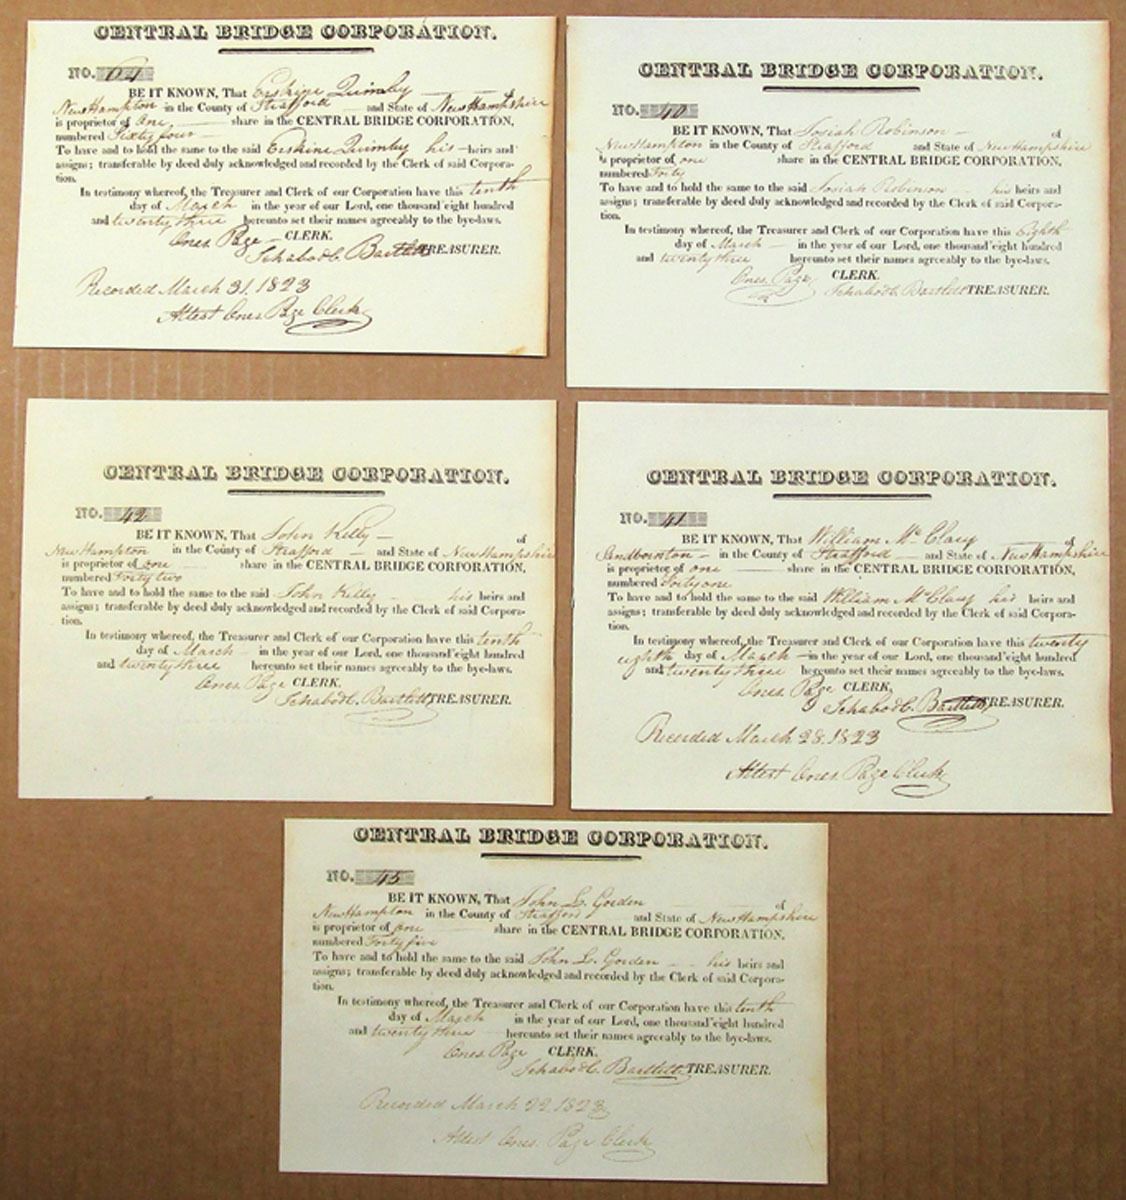 CENTRAL BRIDGE CORPORATION.
NO. 64
BE IT KNOWN, That Erskine Quimby of
New Hampton in the County of Strafford and State of New Hampshire
is proprietor of One share in the CENTRAL BRIDGE CORPORATION,
numbered Sixty four
To have and to hold the same to the said Erskine Quimby his heirs and
assigns; transferable by deed duly acknowledged and recorded by the Clerk of said Corpora-
tion.
In testimony whereof, the Treasurer and Clerk of our Corporation have this tenth
day of March in the year of our Lord, one thousand eight hundred
and twenty three hereunto set their names agreeably to the bye-laws.
Ones. Page CLERK.
Ichabod C. Bartlett TREASURER.
Recorded March 31. 1823
Attest Ones. Page Clerk
CENTRAL BRIDGE CORPORATION.
NO. 40
BE IT KNOWN, That Josiah Robinson of
New Hampton in the County of Strafford and State of New Hampshire
is proprietor of one share in the CENTRAL BRIDGE CORPORATION,
numbered Forty
To have and to hold the same to the said Josiah Robinson his heirs and
assigns; transferable by deed duly acknowledged and recorded by the Clerk of said Corpora-
tion.
In testimony whereof, the Treasurer and Clerk of our Corporation have this Eighth
day of March in the year of our Lord, one thousand eight hundred
and twenty three hereunto set their names agreeably to the bye-laws.
Ones. Page CLERK.
Ichabod C. Bartlett TREASURER.
CENTRAL BRIDGE CORPORATION.
NO. 42
BE IT KNOWN, That John Kelly of
New Hampton in the County of Strafford and State of New Hampshire
is proprietor of one share in the CENTRAL BRIDGE CORPORATION,
numbered Forty two
To have and to hold the same to the said John Kelly his heirs and
assigns; transferable by deed duly acknowledged and recorded by the Clerk of said Corpora-
tion.
In testimony whereof, the Treasurer and Clerk of our Corporation have this tenth
day of March in the year of our Lord, one thousand eight hundred
and twenty three hereunto set their names agreeably to the bye-laws.
Ones. Page CLERK.
Ichabod C. Bartlett TREASURER.
CENTRAL BRIDGE CORPORATION.
NO. 41
BE IT KNOWN, That William Mc Clary of
Sandbornton in the County of Strafford and State of New Hampshire
is proprietor of one share in the CENTRAL BRIDGE CORPORATION,
numbered Forty one
To have and to hold the same to the said William Mc Clary his heirs and
assigns; transferable by deed duly acknowledged and recorded by the Clerk of said Corpora-
tion.
In testimony whereof, the Treasurer and Clerk of our Corporation have this twenty
eighth day of March in the year of our Lord, one thousand eight hundred
and twenty three hereunto set their names agreeably to the bye-laws.
Ones. Page CLERK,
Ichabod C. Bartlett TREASURER.
Recorded March 28. 1823
Attest Ones. Page Clerk
CENTRAL BRIDGE CORPORATION.
NO. 45
BE IT KNOWN, That John L. Gorden of
New Hampton in the County of Strafford and State of New Hampshire
is proprietor of one share in the CENTRAL BRIDGE CORPORATION,
numbered Forty five
To have and to hold the same to the said John L. Gorden his heirs and
assigns; transferable by deed duly acknowledged and recorded by the Clerk of said Corpora-
tion.
In testimony whereof, the Treasurer and Clerk of our Corporation have this tenth
day of March in the year of our Lord, one thousand eight hundred
and twenty three hereunto set their names agreeably to the bye-laws.
Ones. Page CLERK.
Ichabod C. Bartlett TREASURER.
Recorded March 22. 1823
Attest Ones. Page Clerk